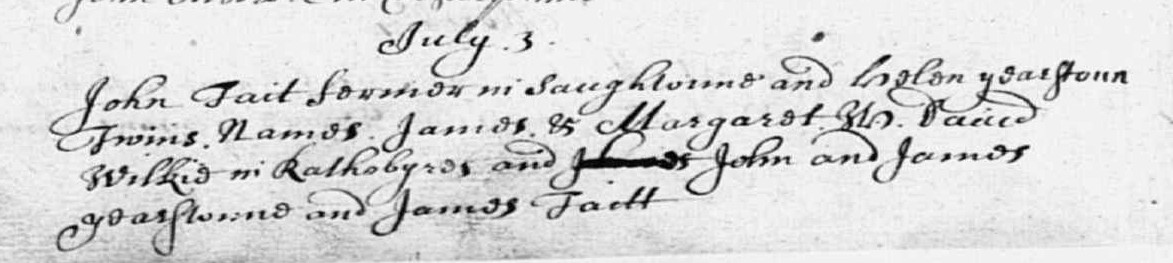 July . 3 .
John Tait fermer in Saughtoune and Helen yearstoun
Twins. Names. James. & Margaret. W. David
Wilkie in Rathobyres and John and James
yearstoune and James Taitt